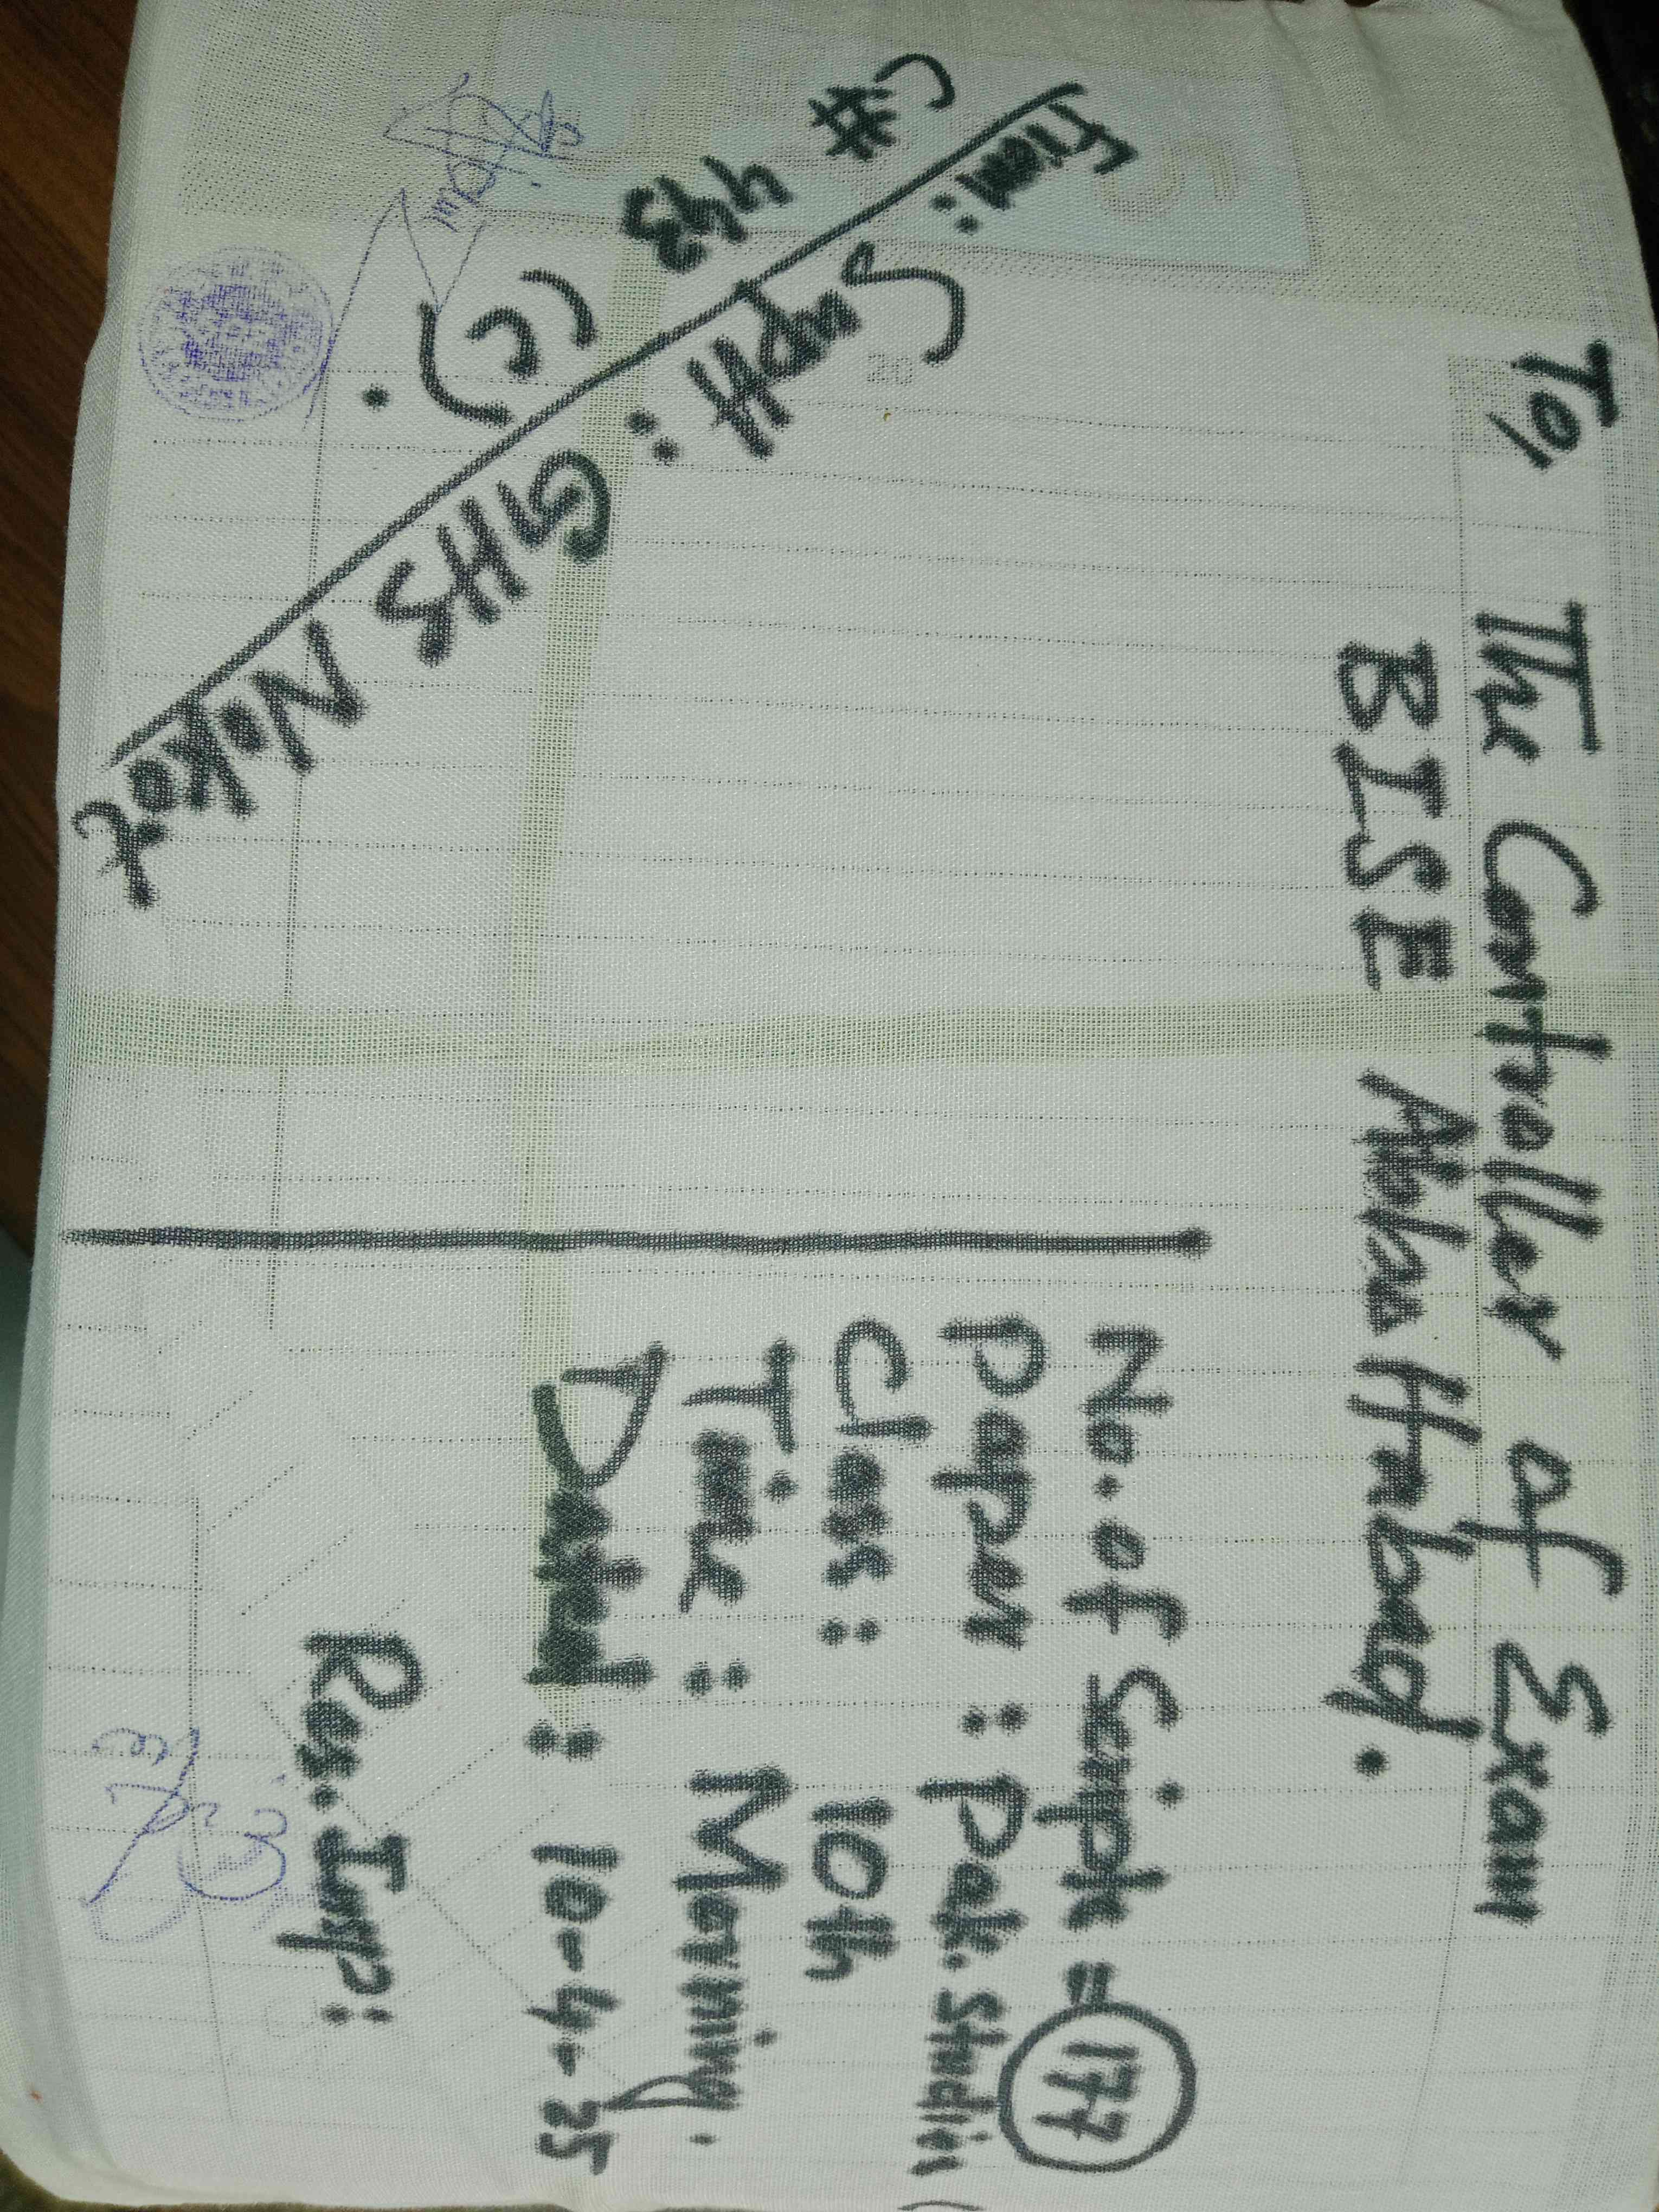 To, The Controller of Exam
BISE Abbottabad.
No. of Script = 177
Paper : Pak. Studies
Class : 10th
Time : Morning.
Dated : 10-4-25
Res. Insp:
From:
Supdt : GHS Nokot
C# 443
(C).